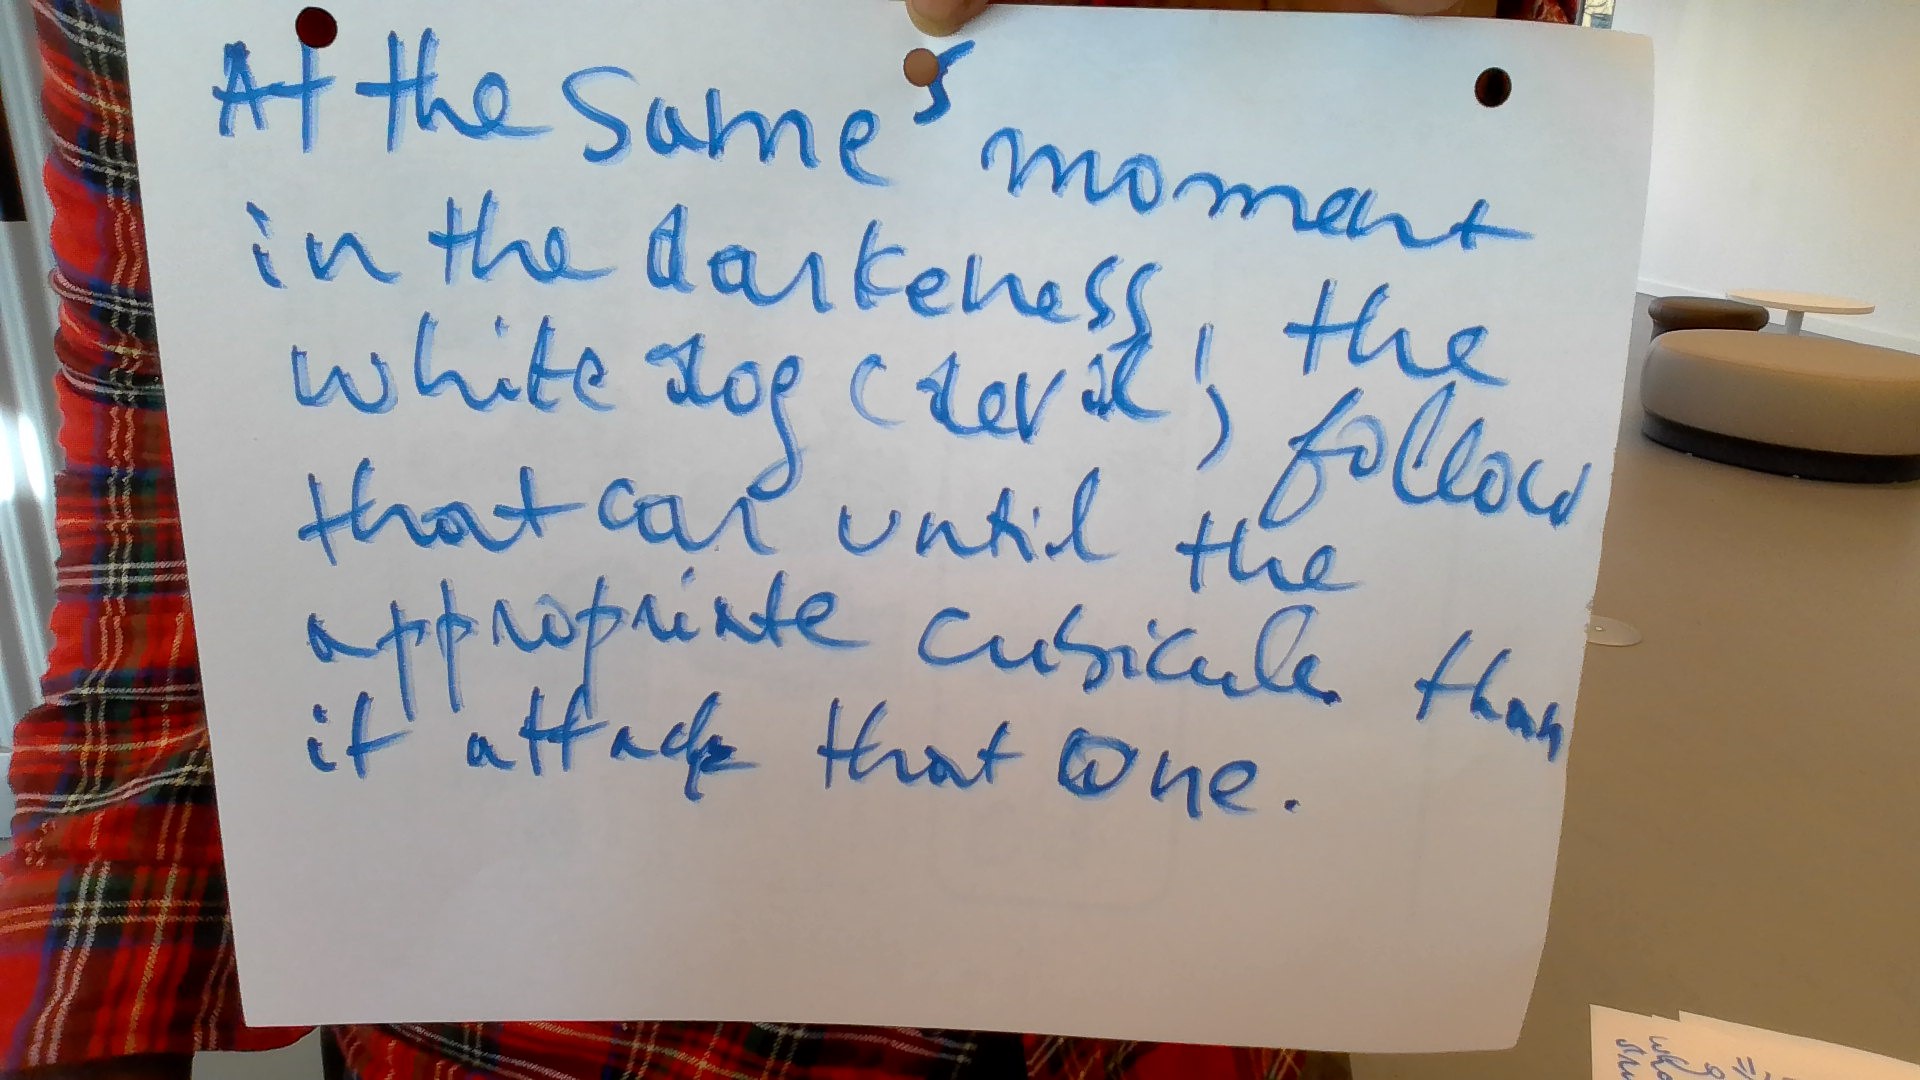 At the same s moment
in the darkeness, the
white dog (devil), follow
that car until the
appropriate cubicule. than
it attack that one.